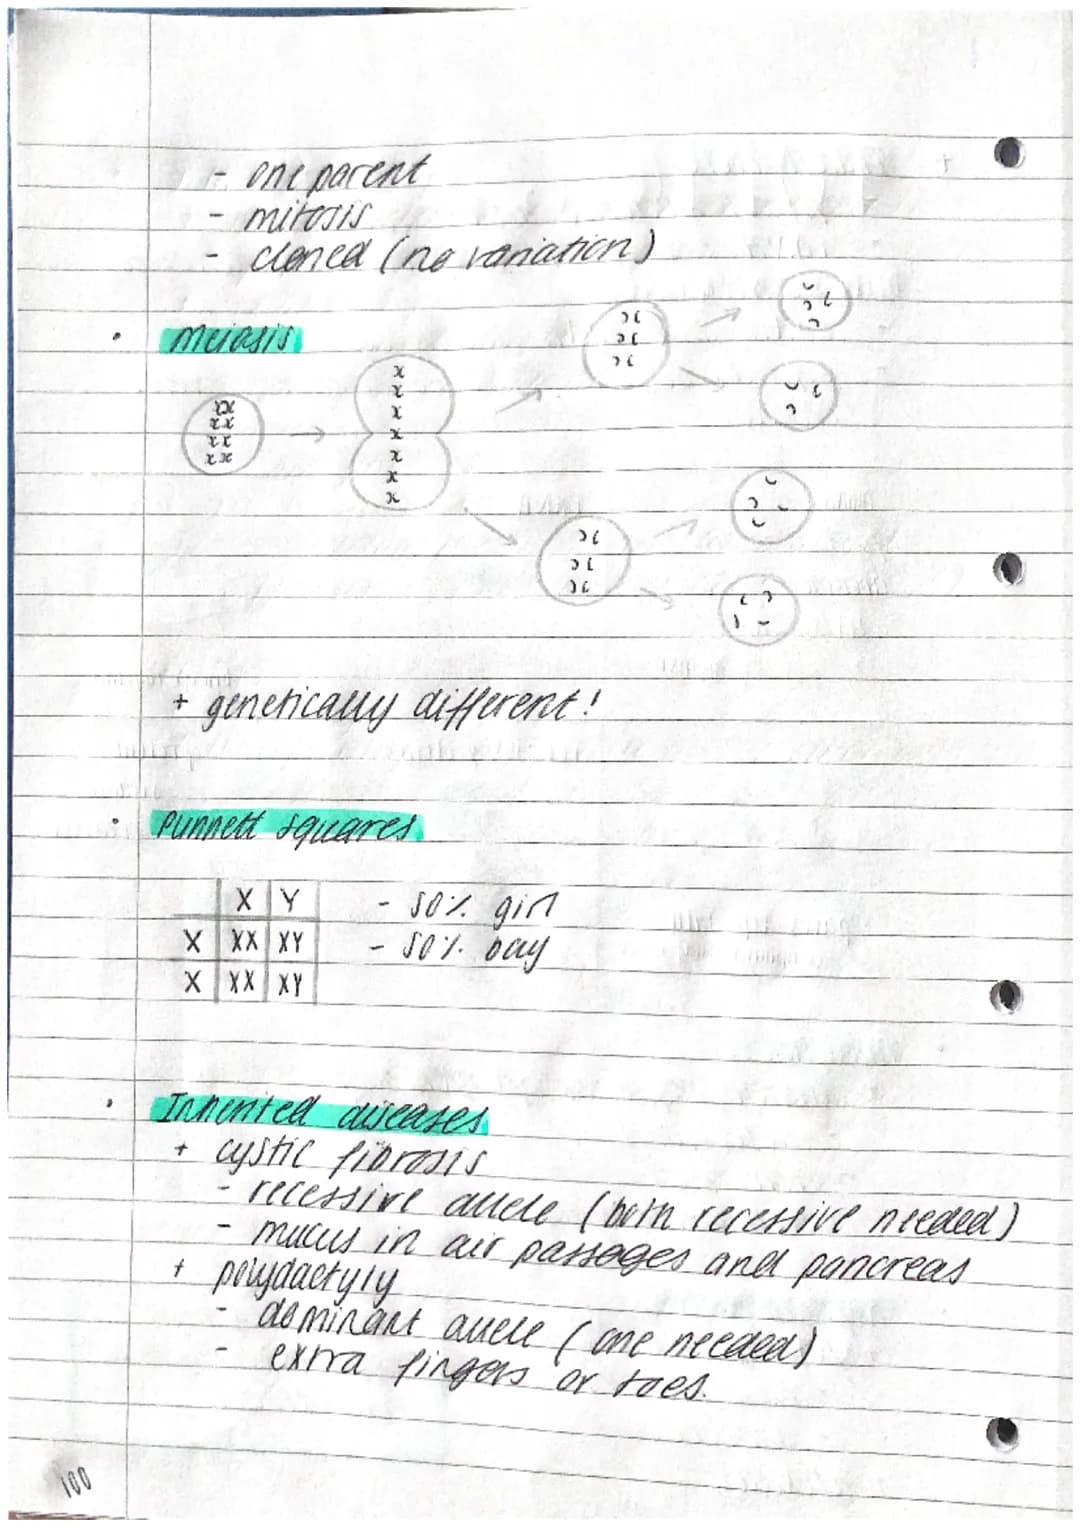 - one parent
- mitosis
- cloned (no variation)
• Meiosis
+ genetically different!
• Punnett squares
X Y - 50% girl
X XX XY - 50% boy
X XX XY
• Inherited diseases
+ cystic fibrosis
- recessive allele (both recessive needed)
- mucus in air passages and pancreas
+ polydactyly
- dominant allele (one needed)
- extra fingers or toes.
100